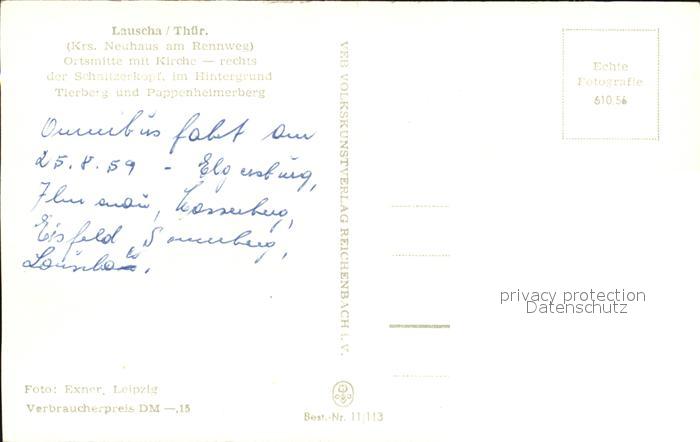 Lauscha / Thür.
(Krs. Neuhaus am Rennweg)
Ortsmitte mit Kirche — rechts
der Schnitzerkopf, im Hintergrund
Tierberg und Pappenheimerberg
Omnibus faht am
25.8.59 - Elgersbürg,
Ilmenaü, Wasserberg,
Eisfeld, Sonneberg,
Laüscha.
Foto: Exner, Leipzig
Verbraucherpreis DM —,15
VEB VOLKSKUNSTVERLAG REICHENBACH i. V.
Best.-Nr. 11/113
Echte
Fotografie
610.56
privacy protection
Datenschutz